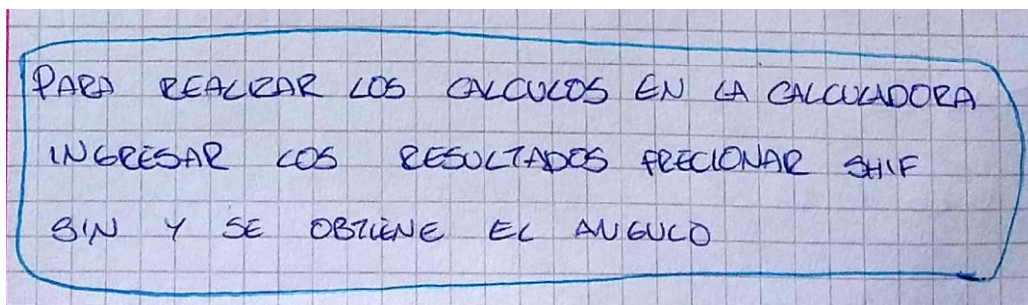 PARA REALIZAR LOS CALCULOS EN LA CALCULADORA
INGRESAR LOS RESULTADOS PRECIONAR SHIF
SIN Y SE OBTIENE EL ANGULO